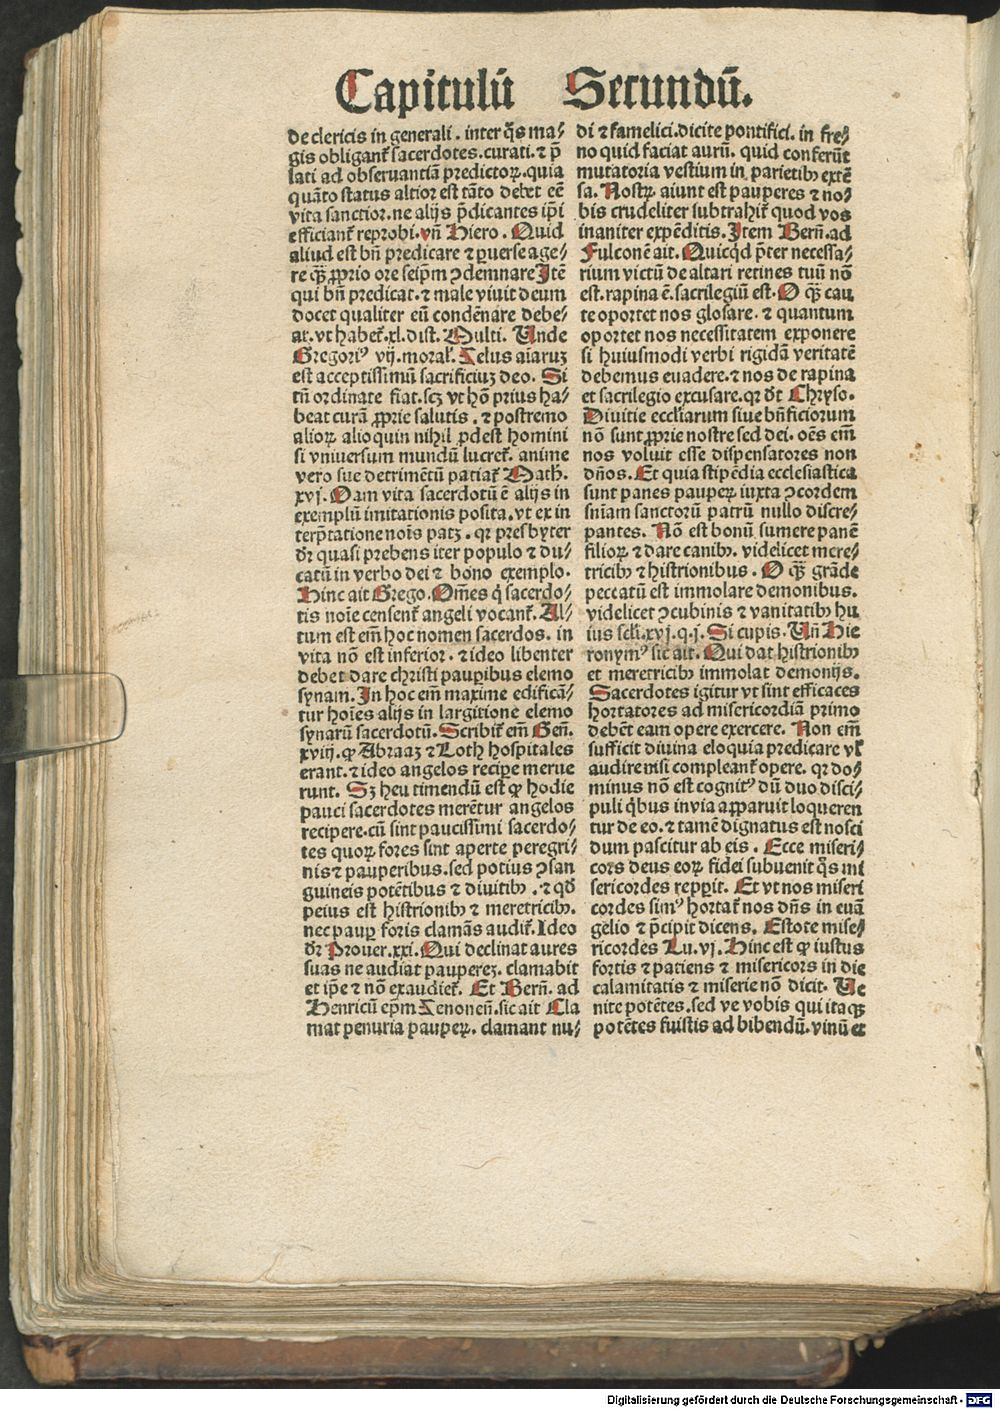 Capitulū Secundū.
de clericis in generali. inter q̄s ma⸗
gis obligant᷑ sacerdotes. curati. ⁊ p̄
lati ad obseruantiā predictoꝝ. quia
quāto status altior est tāto debet eē
vita sanctior. ne alijs p̄dicantes ip̄i
efficiant᷑ reprobi. vn̄ Hiero. Quid
aliud est bn̄ predicare ⁊ ꝑuerse age⸗
re qꝫ̄ ꝓprio ore seip̄m ↄdemnare Itē
qui bn̄ predicat. ⁊ male viuit deum
docet qualiter eū condēnare debe⸗
at. vt habet᷑. xl. dist. Multi. Unde
Gregoriꝰ vij. moral᷑. Zelus aīaruꝫ
est acceptissimū sacrificiuꝫ deo. Si
tn̄ ordinate fiat. scꝫ vt hō prius ha⸗
beat curā ꝓprie salutis. ⁊ postremo
alioꝝ alioquin nihil ꝓdest homini
si vniuersum mundū lucret᷑. anime
vero sue detrimētū patiat᷑ Math.
xvj. Nam vita sacerdotū ē alijs in
exemplū imitationis posita. vt ex in
terp̄tatione noīs patꝫ. qꝛ presbyter
dr̄ quasi prebens iter populo ⁊ du⸗
catū in verbo dei ⁊ bono exemplo.
Hinc ait Grego. Om̄es q̇ sacerdo⸗
tis noīe censent᷑ angeli vocant᷑. Al⸗
tum est em̄ hoc nomen sacerdos. in
vita nō est inferior. ⁊ ideo libenter
debet dare christi pauꝑibus elemo
synam. In hoc em̄ maxime edificā⸗
tur hoīes alijs in largitione elemo
synarū sacerdotū. Scribit᷑ em̄ Gen̄.
xviij. ꝙ Abraaꝫ ⁊ Loth hospitales
erant. ⁊ ideo angelos reciꝑe merue
runt. Sꝫ heu timendū est ꝙ hodie
pauci sacerdotes merētur angelos
recipere. cū sint paucissimi sacerdo⸗
tes quoꝝ fores sint aperte peregri⸗
nis ⁊ pauperibus. sed potius ↄsan
guineis potētibus ⁊ diuitibꝫ. ⁊ qd̄
peius est histrionibꝫ ⁊ meretricibꝫ.
nec pauꝑ foris clamās audit᷑. Ideo
dr̄ Prouer. xxi. Qui declinat aures
suas ne audiat paupereꝫ. clamabit
et ip̄e ⁊ nō exaudiet᷑. Et Bern̄. ad
Henricū ep̄m Zenonen̄. sic ait Cla
mat penuria pauperꝝ. clamant nu⸗
di ⁊ famelici. dicite pontifici. in fre⸗
no quid faciat aurū. quid conferūt
mutatoria vestium in parietibꝫ extē
sa. Nostrꝝ aiunt est pauperes ⁊ no⸗
bis crudeliter subtrahit᷑ quod vos
inaniter expēditis. Item Bern̄. ad
Fulconē ait. Quicq̇d p̄ter necessa⸗
rium victū de altari retines tuū nō
est. rapina ē. sacrilegiū est. O qꝫ̄ cau
te oportet nos glosare. ⁊ quantum
oportet nos necessitatem exponere
si huiusmodi verbi rigidā veritatē
debemus euadere. ⁊ nos de rapina
et sacrilegio excusare. qꝛ dt̄ Chryso.
Diuitie eccliarum siue bn̄ficiorum
nō sunt ꝓprie nostre sed dei. oēs em̄
nos voluit esse dispensatores non
dn̄os. Et quia stipēdia ecclesiastica
sunt panes pauperꝝ iuxta ↄcordem
sn̄iam sanctorū patrū nullo discre⸗
pantes. Nō est bonū sumere panē
filioꝝ ⁊ dare canibꝫ. videlicet mere⸗
tricibꝫ ⁊ histrionibus. O qꝫ̄ grāde
peccatū est immolare demonibus.
videlicet ↄcubinis ⁊ vanitatibꝫ hu
ius scl᷑i. xvj. q. j. Si cupis. Un̄ Hie
ronymꝰ sic ait. Qui dat histrionibꝫ
et meretricibꝫ immolat demonijs.
Sacerdotes igitur vt sint efficaces
hortatores ad misericordiā primo
debēt eam opere exercere. Non em̄
sufficit diuina eloquia predicare vl᷑
audire nisi compleant᷑ opere. qꝛ do⸗
minus nō est cognitꝰ dū duo disci⸗
puli q̇bus in via apparuit loqueren
tur de eo. ⁊ tamē dignatus est nosci
dum pascitur ab eis. Ecce miseri⸗
cors deus eoꝝ fidei subuenit q̄s mi
sericordes repꝑit. Et vt nos miseri
cordes simꝰ hortat᷑ nos dn̄s in euā
gelio ⁊ p̄cipit dicens. Estote mise⸗
ricordes Lu. vj. Hinc est ꝙ iustus
fortis ⁊ patiens ⁊ misericors in die
calamitatis ⁊ miserie nō dicit. Ve
nite potētes. sed ve vobis qui itaqꝫ
potētes fuistis ad bibendū. vinū et
Digitalisierung gefördert durch die Deutsche Forschungsgemeinschaft - DFG